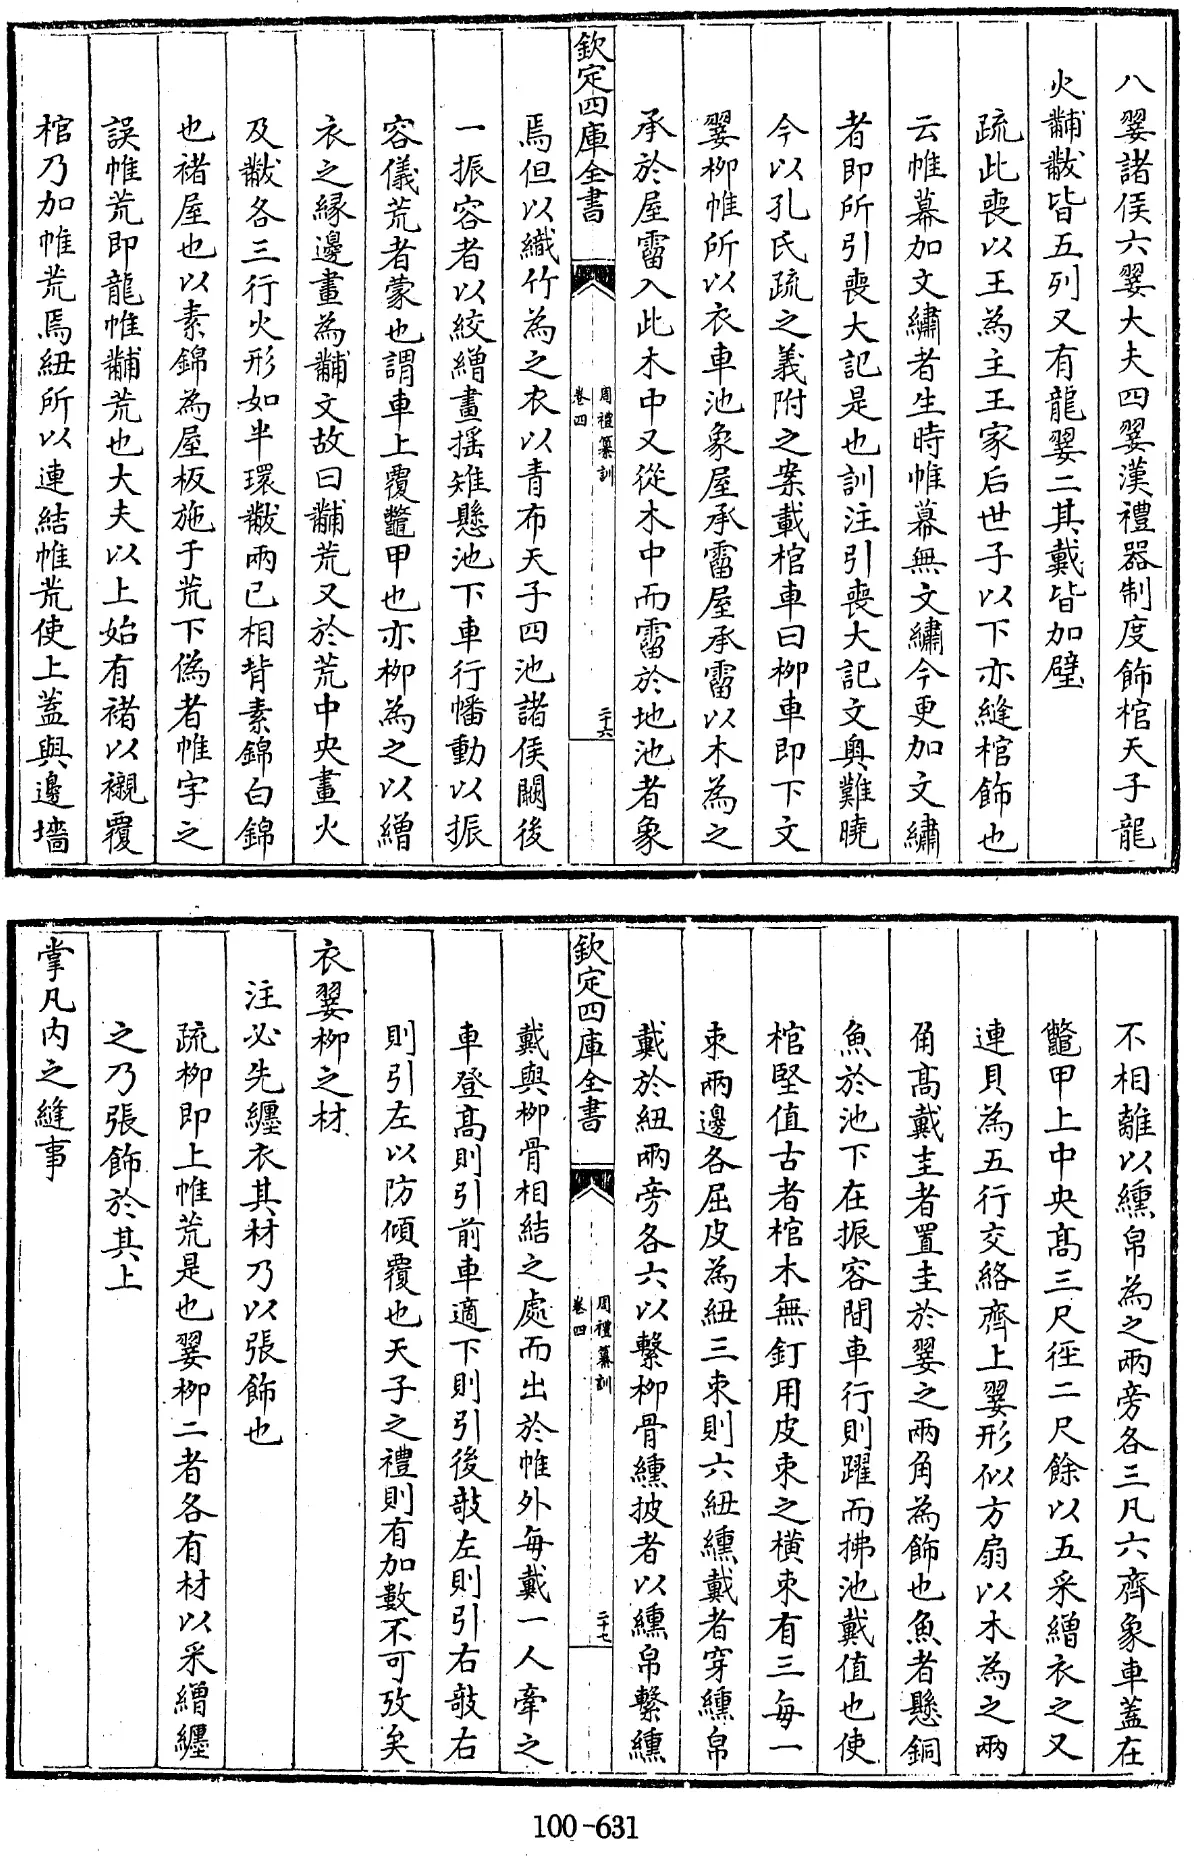 八翣諸侯六翣大夫四翣漢禮器制度飾棺天子龍
火黼黻皆五列又有龍翣二其戴皆加璧
疏此喪以王為主王家后世子以下亦縫棺飾也
云帷幕加文繡者生時帷幕無文繡今更加文繡
者即所引喪大記是也訓注引喪大記文奥難曉
今以孔氏疏之義附之案載棺車曰柳車即下文
翣柳帷所以衣車池象屋承霤屋承霤以木為之
承於屋霤入此木中又從木中而霤於地池者象
欽定四庫全書
周禮纂訓
卷四
二十六
焉但以織竹為之衣以青布天子四池諸侯闕後
一振容者以絞繒畫揺雉懸池下車行幡動以振
容儀荒者蒙也謂車上覆鼈甲也亦柳為之以繒
衣之縁邊畫為黼文故曰黼荒又於荒中央畫火
及黻各三行火形如半環黻兩已相背素錦白錦
也褚屋也以素錦為屋板施于荒下偽者帷字之
誤帷荒即龍帷黼荒也大夫以上始有褚以襯覆
棺乃加帷荒焉紐所以連結帷荒使上蓋與邊墻
不相離以纁帛為之兩旁各三凡六齊象車蓋在
鼈甲上中央髙三尺徑二尺餘以五采繒衣之又
連貝為五行交絡齊上翣形似方扇以木為之兩
角髙戴圭者置圭於翣之兩角為飾也魚者懸銅
魚於池下在振容間車行則躍而拂池戴值也使
棺堅值古者棺木無釘用皮束之横束有三每一
束兩邊各屈皮為紐三束則六紐纁戴者穿纁帛
戴於紐兩旁各六以繫柳骨纁披者以纁帛繫纁
欽定四庫全書
周禮纂訓
卷四
二十七
戴與柳骨相結之處而出於帷外每戴一人牽之
車登髙則引前車適下則引後敧左則引右敧右
則引左以防傾覆也天子之禮則有加數不可攷矣
衣翣柳之材
注必先纒衣其材乃以張飾也
疏柳即上帷荒是也翣柳二者各有材以采繒纒
之乃張飾於其上
掌凡内之縫事
100-631